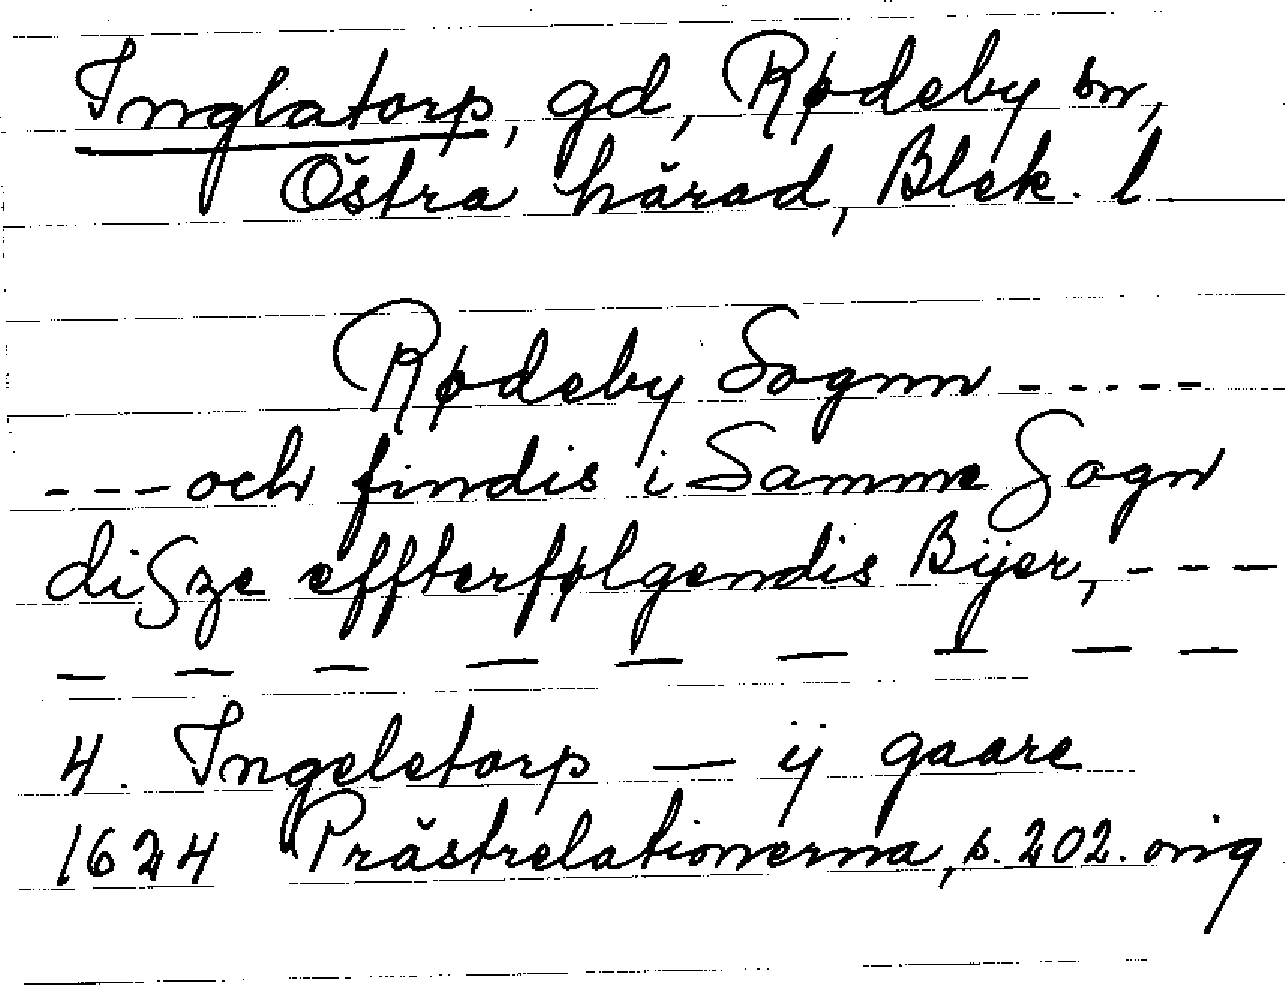 Inglatorp, gd, Rødeby sn,
Östra härad, Blek. l
Rødeby Sognn - - - - -
- - - och findis i Samme Sogn
diSze effterfølgendis Bÿer, - - -
— — — — — — — — —
4. Ingeletorp — ij gaare
1624 Prästrelationerna, s. 202. orig